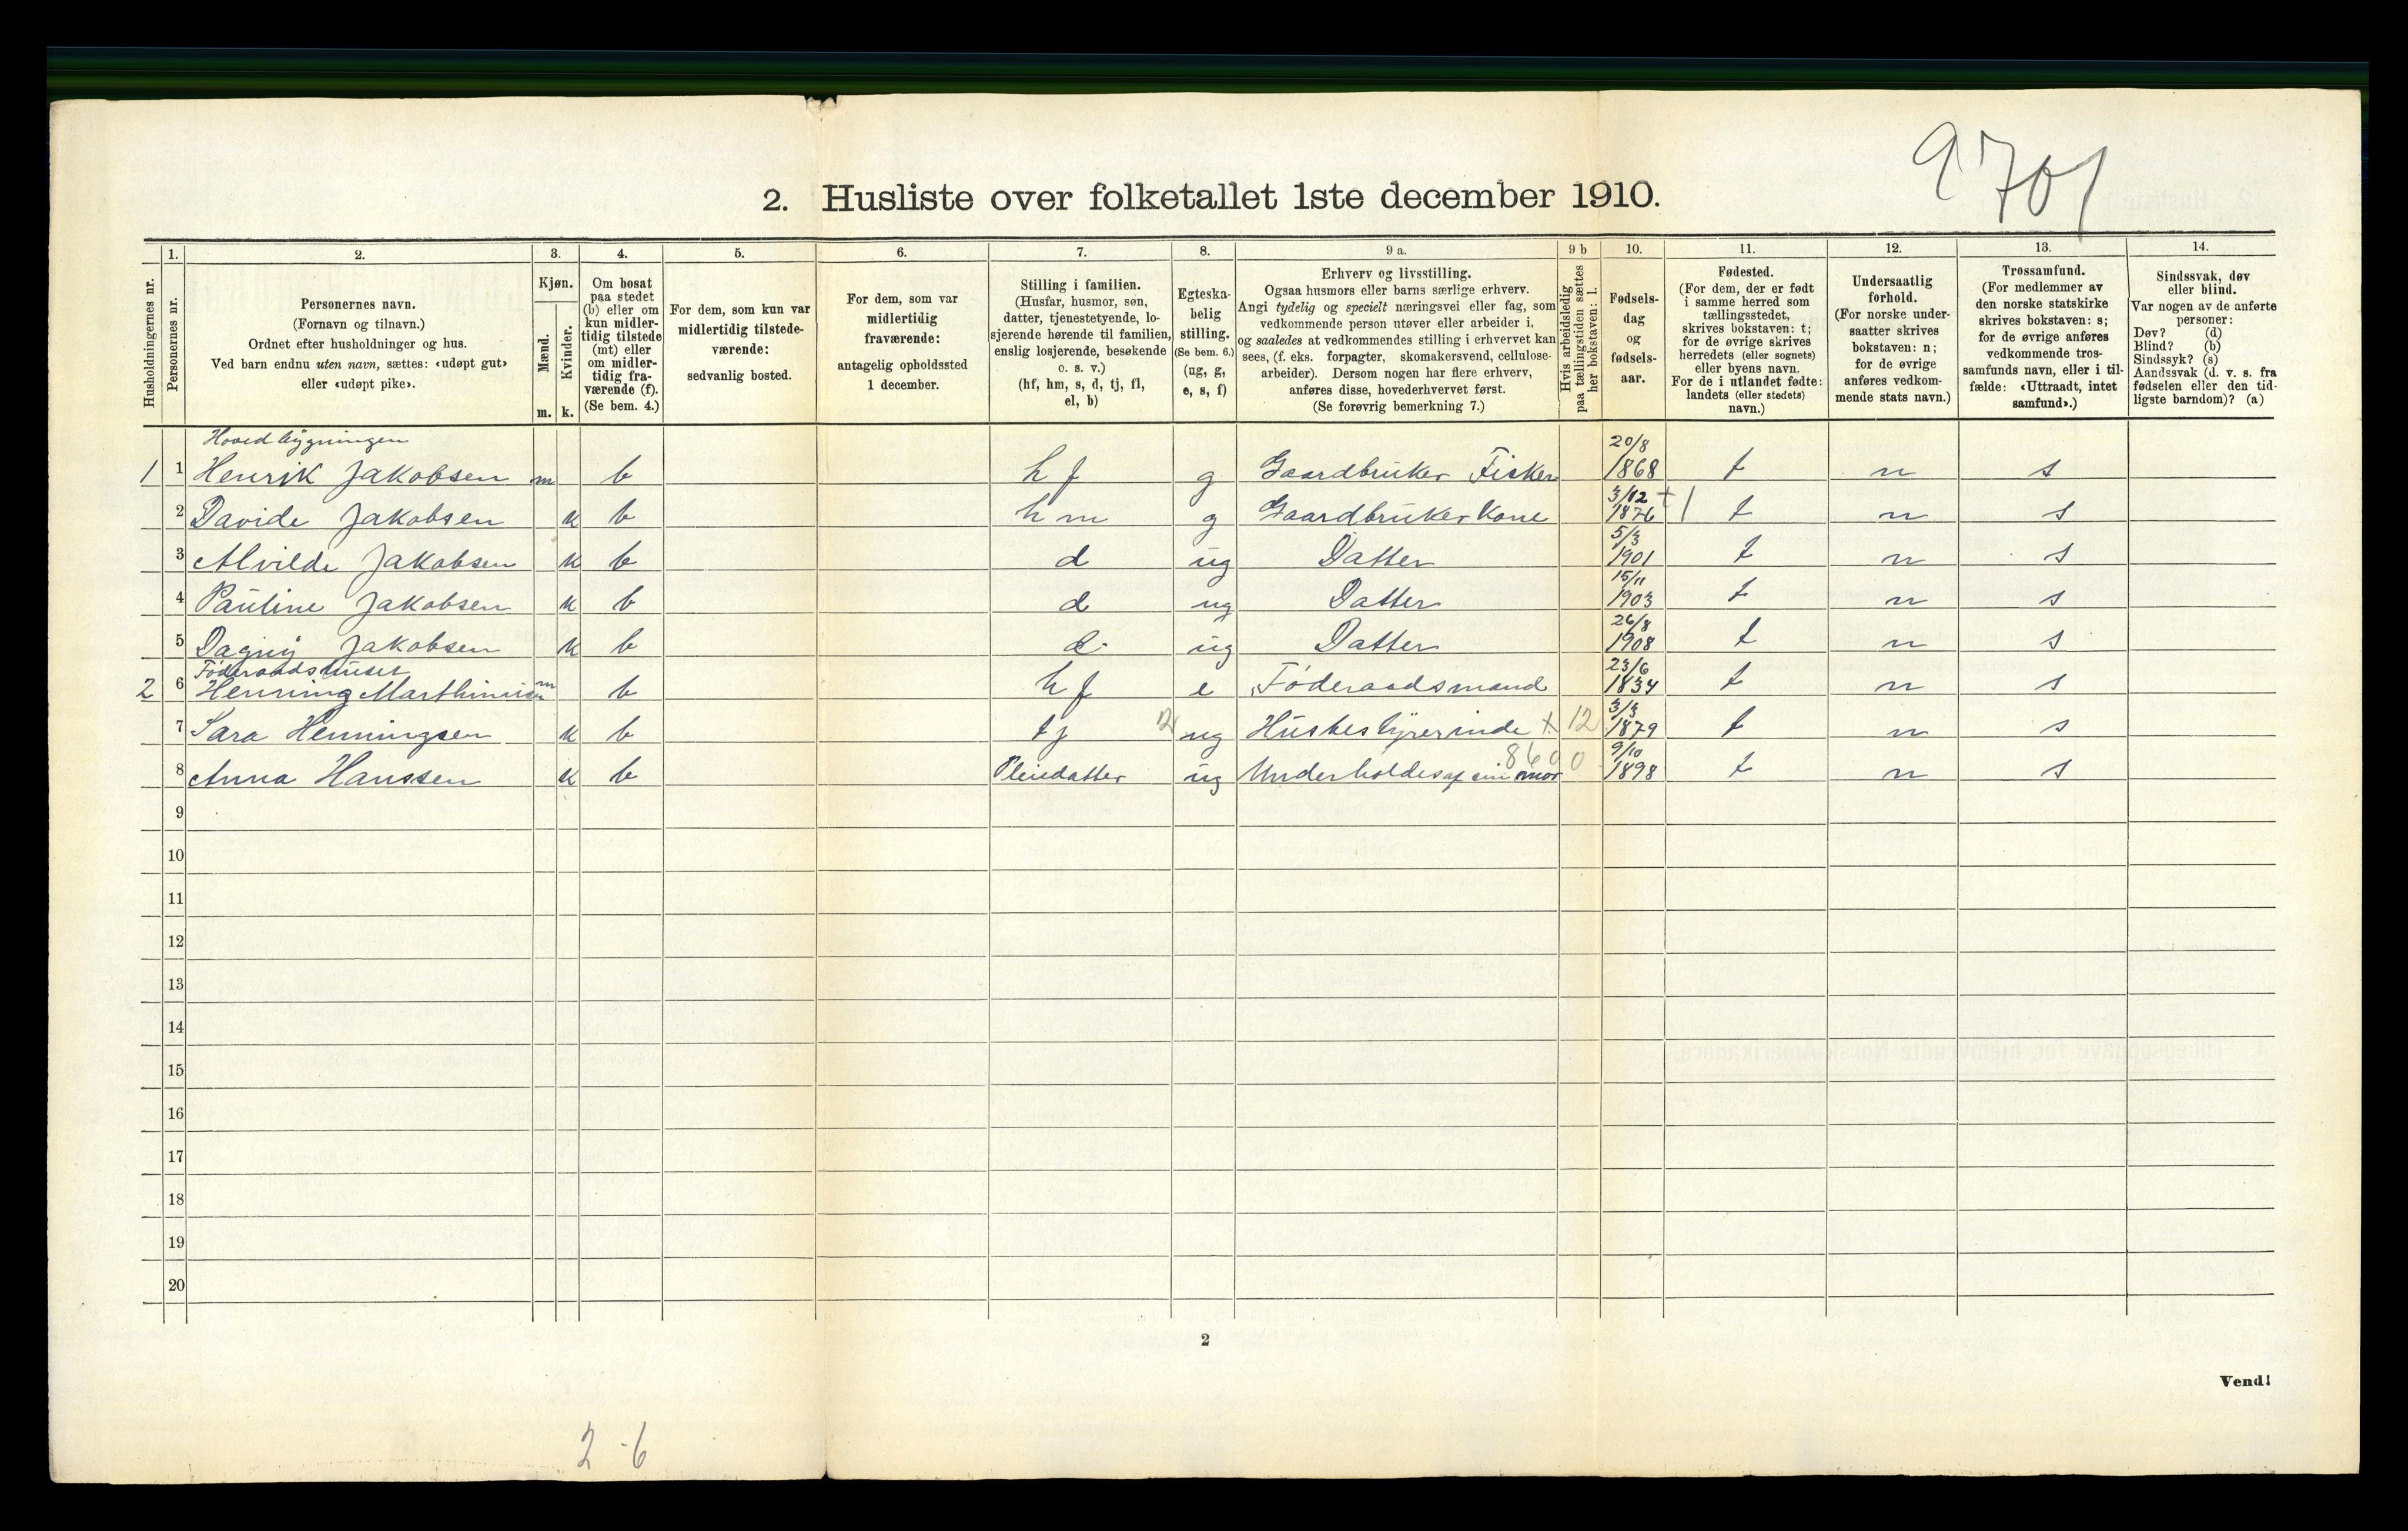 9701
2. Husliste over folketallet 1ste december 1910.
Husholdningernes nr.
1.
Personernes nr.
2.
Personernes navn.
(Fornavn og tilnavn.)
Ordnet efter husholdninger og hus.
Ved barn endnu uten navn, sættes: «udøpt gut»
eller «udøpt pike».
3.
Kjøn.
Mænd.
m.
Kvinder.
k.
4.
Om bosat
paa stedet
(b) eller om
kun midler-
tidig tilstede
(mt) eller
om midler-
tidig fra-
værende (f).
(Se bem. 4.)
5.
For dem, som kun var
midlertidig tilstede-
værende:
sedvanlig bosted.
6.
For dem, som var
midlertidig
fraværende:
antagelig opholdssted
1 december.
7.
Stilling i familien.
(Husfar, husmor, søn,
datter, tjenestetyende, lo-
sjerende hørende til familien,
enslig losjerende, besøkende
o. s. v.)
(hf, hm, s, d, tj, fl,
el, b)
8.
Egteska-
belig
stilling.
(Se bem. 6.)
(ug, g,
e, s, f)
9 a.
Erhverv og livsstilling.
Ogsaa husmors eller barns særlige erhverv.
Angi tydelig og specielt næringsvei eller fag, som
vedkommende person utøver eller arbeider i,
og saaledes at vedkommendes stilling i erhvervet kan
sees, (f. eks. forpagter, skomakersvend, cellulose-
arbeider). Dersom nogen har flere erhverv,
anføres disse, hovederhvervet først.
(Se forøvrig bemerkning 7.)
9 b
Hvis arbeidsledig
paa tællingstiden sættes
her bokstaven: l.
10.
Fødsels-
dag
og
fødsels-
aar.
11.
Fødested.
(For dem, der er født
i samme herred som
tællingsstedet,
skrives bokstaven: t;
for de øvrige skrives
herredets (eller sognets)
eller byens navn.
For de i utlandet fødte:
landets (eller stedets)
navn.)
12.
Undersaatlig
forhold.
(For norske under-
saatter skrives
bokstaven: n;
for de øvrige
anføres vedkom-
mende stats navn.)
13.
Trossamfund.
(For medlemmer av
den norske statskirke
skrives bokstaven: s;
for de øvrige anføres
vedkommende tros-
samfunds navn, eller i til-
fælde: «Uttraadt, intet
samfund».)
14.
Sindssvak, døv
eller blind.
Var nogen av de anførte
personer:
Døv? (d)
Blind? (b)
Sindssyk? (s)
Aandssvak (d. v. s. fra
fødselen eller den tid-
ligste barndom)? (a)
Hovedbygningen
1 1 Henrik Jakobsen m b hf g Gaardbruker Fisker 20/8 1868 t n s
2 Davide Jakobsen k b hm g Gaardbruker Kone 3/12 1876 +1 t n s
3 Alvilde Jakobsen k b d ug Datter 5/3 1901 t n s
4 Pauline Jakobsen k b d ug Datter 15/11 1903 t n s
5 Dagny Jakobsen k b d ug Datter 26/8 1908 t n s
Føderaadshuset
2 6 Henning Marthinusen m b hf e Føderaadsmand 23/6 1834 t n s
7 Sara Henningsen k b tj 12 ug Husbestyrerinde + 12 3/3 1879 t n s
8600
8 Anna Hanssen k b Pleiedatter ug Underholdes af sin mor 9/10 1898 t n s
9
10
11
12
13
14
15
16
17
18
19
20
2
Vend!
2-6